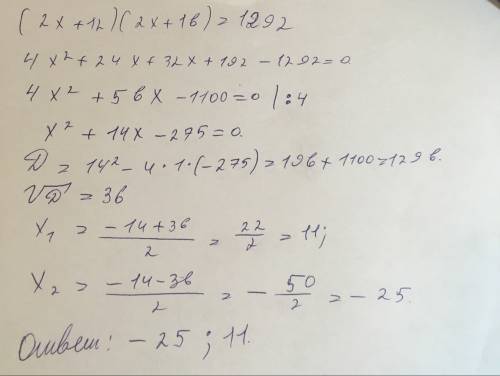 (2x+12)(2x+16) = 1292
4x² + 24x + 32x + 192 - 1292 = 0
4x² + 56x - 1100 = 0 | : 4
x² + 14x - 275 = 0.
D = 14² - 4 · 1 · (-275) = 196 + 1100 = 1296.
√D = 36
x₁ = (-14+36)/2 = 22/2 = 11;
x₂ = (-14-36)/2 = - 50/2 = - 25.
Ответ: - 25 ; 11.